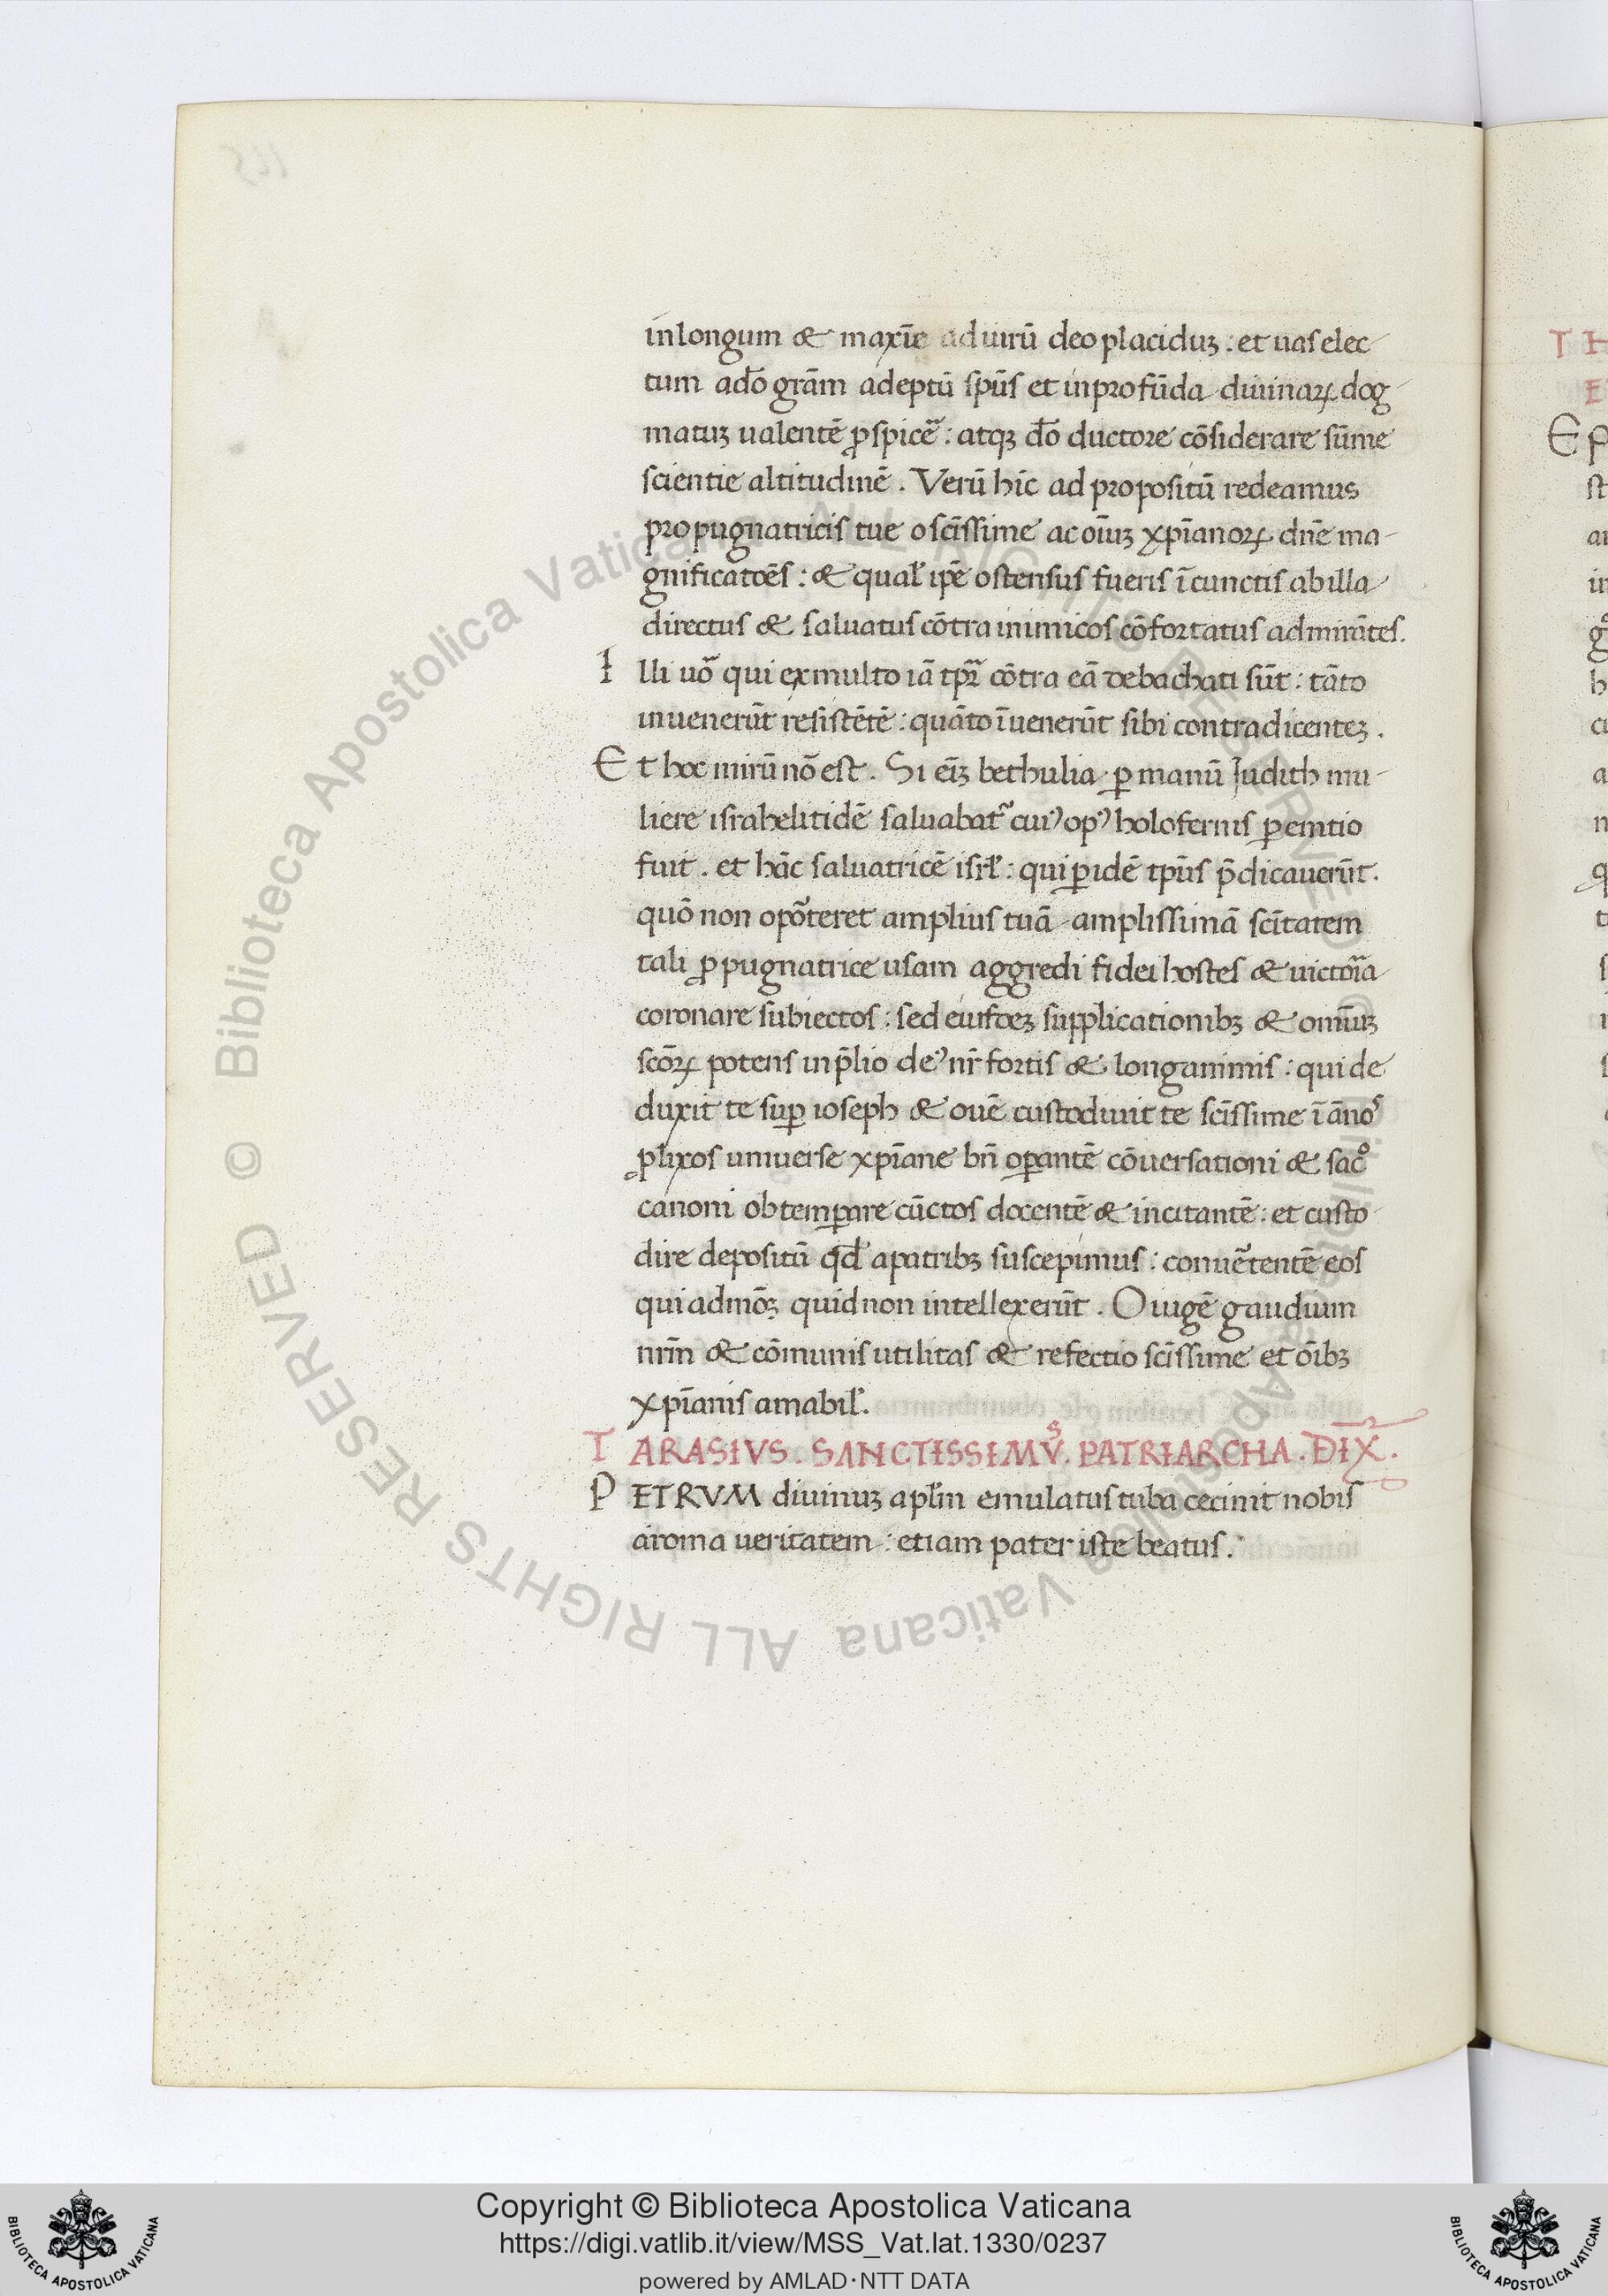 inlongum & maxīe ad uirū deo placiduꝫ : et uas elec
tum ad̄o grām adeptū sp̄us et inprofūda diuinaꝝ dog
matuꝫ ualentē ꝓspicē : atqꝫ d̄o ductore cōsiderare sūme
scientie altitudinē . Verū hīc ad propositū redeamus
propugnatricis tue o sc̄issime ac oīuꝫ xp̄ianoꝝ dn̄e ma-
gnificatōes : & qual' ip̄e ostensus fueris ī cunctis abilla
directus & saluatus cōtra inimicos cōfortatus admirātes.
I lli uo᷑ qui exmulto iā tp̄r cōtra eā debachati sūt : tāto
inuenerūt resistētē : quāto īuenerūt sibi contradicenteꝫ .
E t hoc mirū nō est . Si eīꝫ bethulia ꝑ manū Iudith mu-
liere israhelitidē saluabat᷑ cuiꝰ opꝰ holofernis ꝑemtio
fuit . et hāc saluatricē isrl' : qui ꝑidē tp̄us p̄dicauerūt .
quō non opo᷑teret amplius tuā amplissimā sc̄itatem
tali ꝓpugnatrice usam aggredi fidei hostes & uictoīa
coronare subiectos : sed eiusdeꝫ supplicationibꝫ & omīuꝫ
sc̄oꝝ potens inp̄lio deꝰ nr̄ fortis & longanimis : qui de
duxit te suꝑ ioseph & ouē custodiuit te sc̄issime ī ānos
ꝓlixos uniuerse xp̄iane bn̄ oꝑantē cōuersationi & sac̊
canoni obtemꝑare cūctos docentē & incitantē : et custo
dire depositū qd' apatribꝫ suscepimus : conue᷑tentē eos
qui admōꝫ quid non intellexerūt . O iugē gaudium
nr̄m & cōmunis utilitas & refectio sc̄issime et oībꝫ
xp̄ianis amabil'.
T ARASIVS . SANCTISSIMVˢ . PATRIARCHA . DIX̄ .
P ETRVM diuinuꝫ apl'm emulatus tuba cecinit nobis
aroma ueritatem : etiam pater iste beatus .
Copyright © Biblioteca Apostolica Vaticana
https://digi.vatlib.it/view/MSS_Vat.lat.1330/0237
powered by AMLAD · NTT DATA
BIBLIOTECA APOSTOLICA VATICANA
BIBLIOTECA APOSTOLICA VATICANA
© Biblioteca Apostolica Vaticana ALL RIGHTS RESERVED © Biblioteca Apostolica Vaticana ALL RIGHTS RESERVED